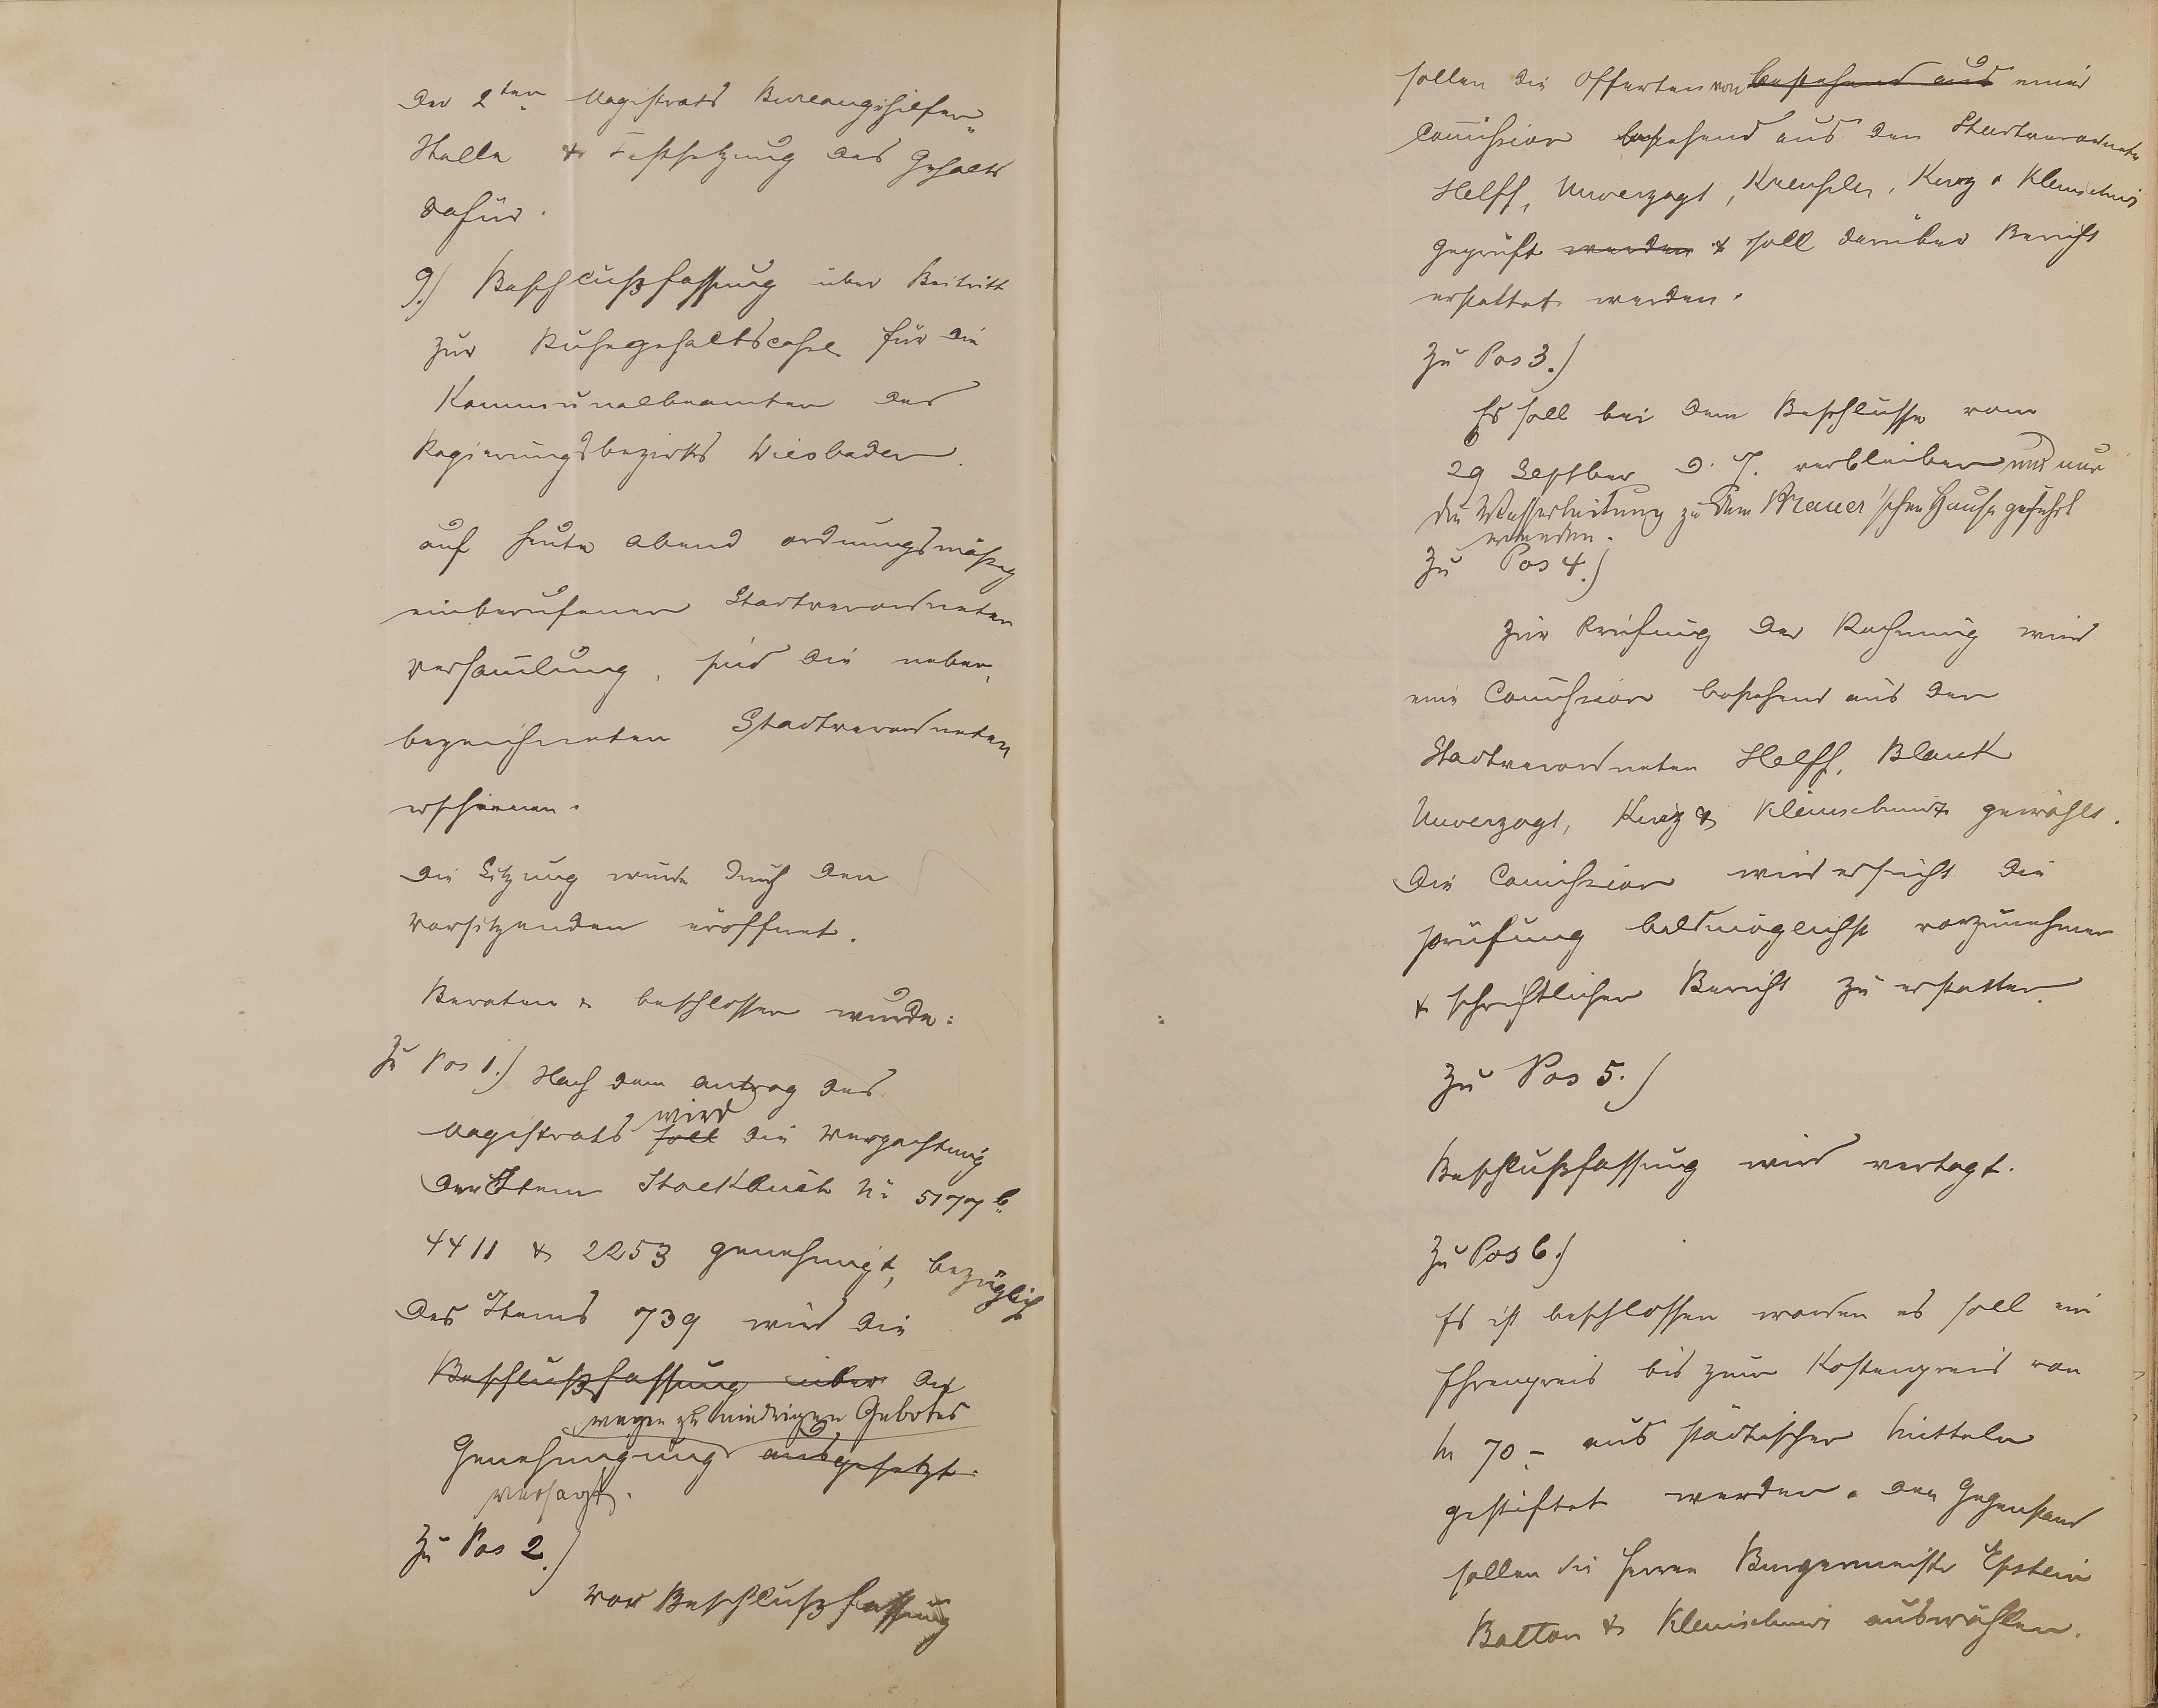 der 2ten Magistrats Bureaugehilfen„
Stelle & Festsetzung des Gehalts
dafür.
9.) Beschlußfassung über Beitritt
zur Ruhegehaltscasse für die
Kommunalbeamten des
Regierungsbezirks Wiesbaden.
auf heute abend ordnungsmäßig
einberufenen Stadtverordneten
versam̅lung, sind die neben„
bezeichneten Stadtverordneten
erschienen.
Die Sitzung wurde durch den
Vorsitzenden eröffnet.
Beraten & beschlossen wurde:
Zu Pos 1.) Nach dem Antrag des
wird
Magistrats soll die Verpachtung
der Item Stockbuch No 5177 b.
4411 & 2253 genehmigt, bezüglich
des Items 739 wird die
Beschlußfassung über die
wegen zu niedrigen Gebotes
Genehmigung ausgesetzt.
versagt.
Zu Pos 2.)
Vor Beschlußfassung
sollen die Offerten von bestehend aus einer
Com̅ission bestehend aus den Stadtverordneten
Helff, Unverzagt, Kreuhler, Kurz & Kleinschmidt
geprüft werden & soll darüber Bericht
erstattet werden.
Zu Pos 3.)
Es soll bei dem Beschlusse vom
29 Septber d. J. verbleiben und nur
die Wasserleitung zu dem Brauer'schen Hause geführt
werden.
Zu Pos 4.)
Zur Prüfung der Rechnung wird
eine Com̅ission bestehend aus den
Stadtverordneten Helff, Blank
Unverzagt, Kurz & Kleinschmidt gewählt.
Die Com̅ission wird ersucht die
Prüfung baldmöglichst vorzunehmen
& schriftlichen Bericht zu erstatten.
Zu Pos 5.)
Beschlußfassung wird vertagt.
Zu Pos 6.)
Es ist beschlossen worden es soll ein
Ehrenpreis bis zum Kostenpreis von
M 70.- aus städtischen Mitteln
gestiftet werden. Den Gegenstand
sollen die Herren Burgermeister Epstein
Batton & Kleinschmidt auswählen.